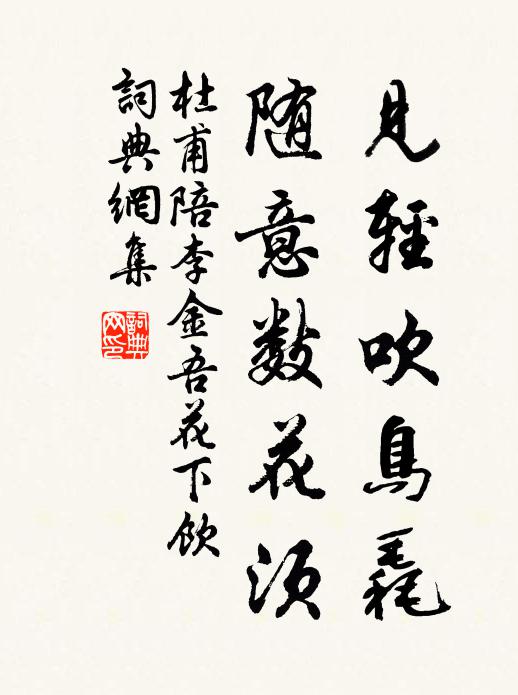 見輕吹鳥毳
随意數花須
杜甫陪李金吾花下飲
詞典網集
詞典网印